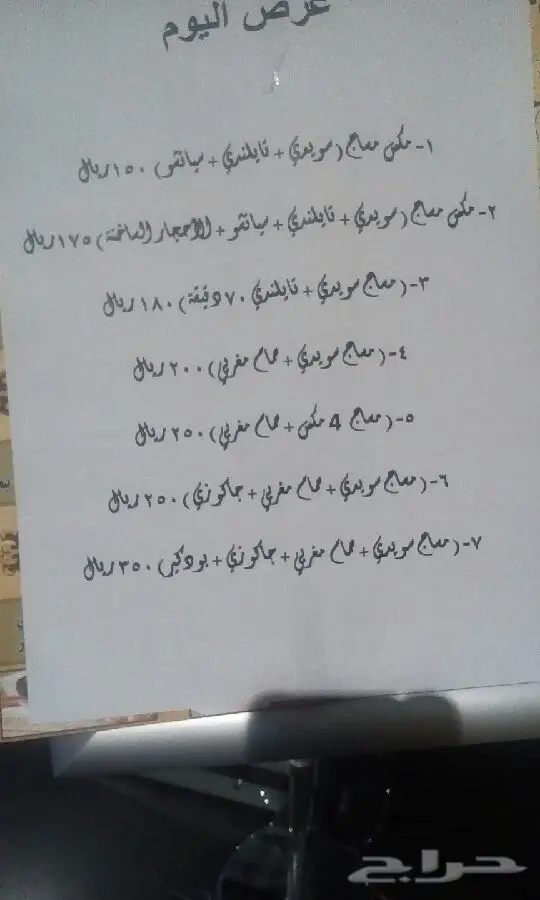 عرض اليوم
١- مكس مساج (سويدي + تايلندي + سياتسو) ١٥٠ ريال
٢- مكس مساج (سويدي + تايلندي + سياتسو + الأحجار الساخنة) ١٧٥ ريال
٣- (مساج سويدي + تايلندي ٧٠ دقيقة) ١٨٠ ريال
٤- (مساج سويدي + حمام مغربي) ٢٠٠ ريال
٥- (مساج 4 مكس + حمام مغربي) ٢٥٠ ريال
٦- (مساج سويدي + حمام مغربي + جاكوزي) ٢٥٠ ريال
٧- (مساج سويدي + حمام مغربي + جاكوزي + بودكير) ٣٥٠ ريال
حراج